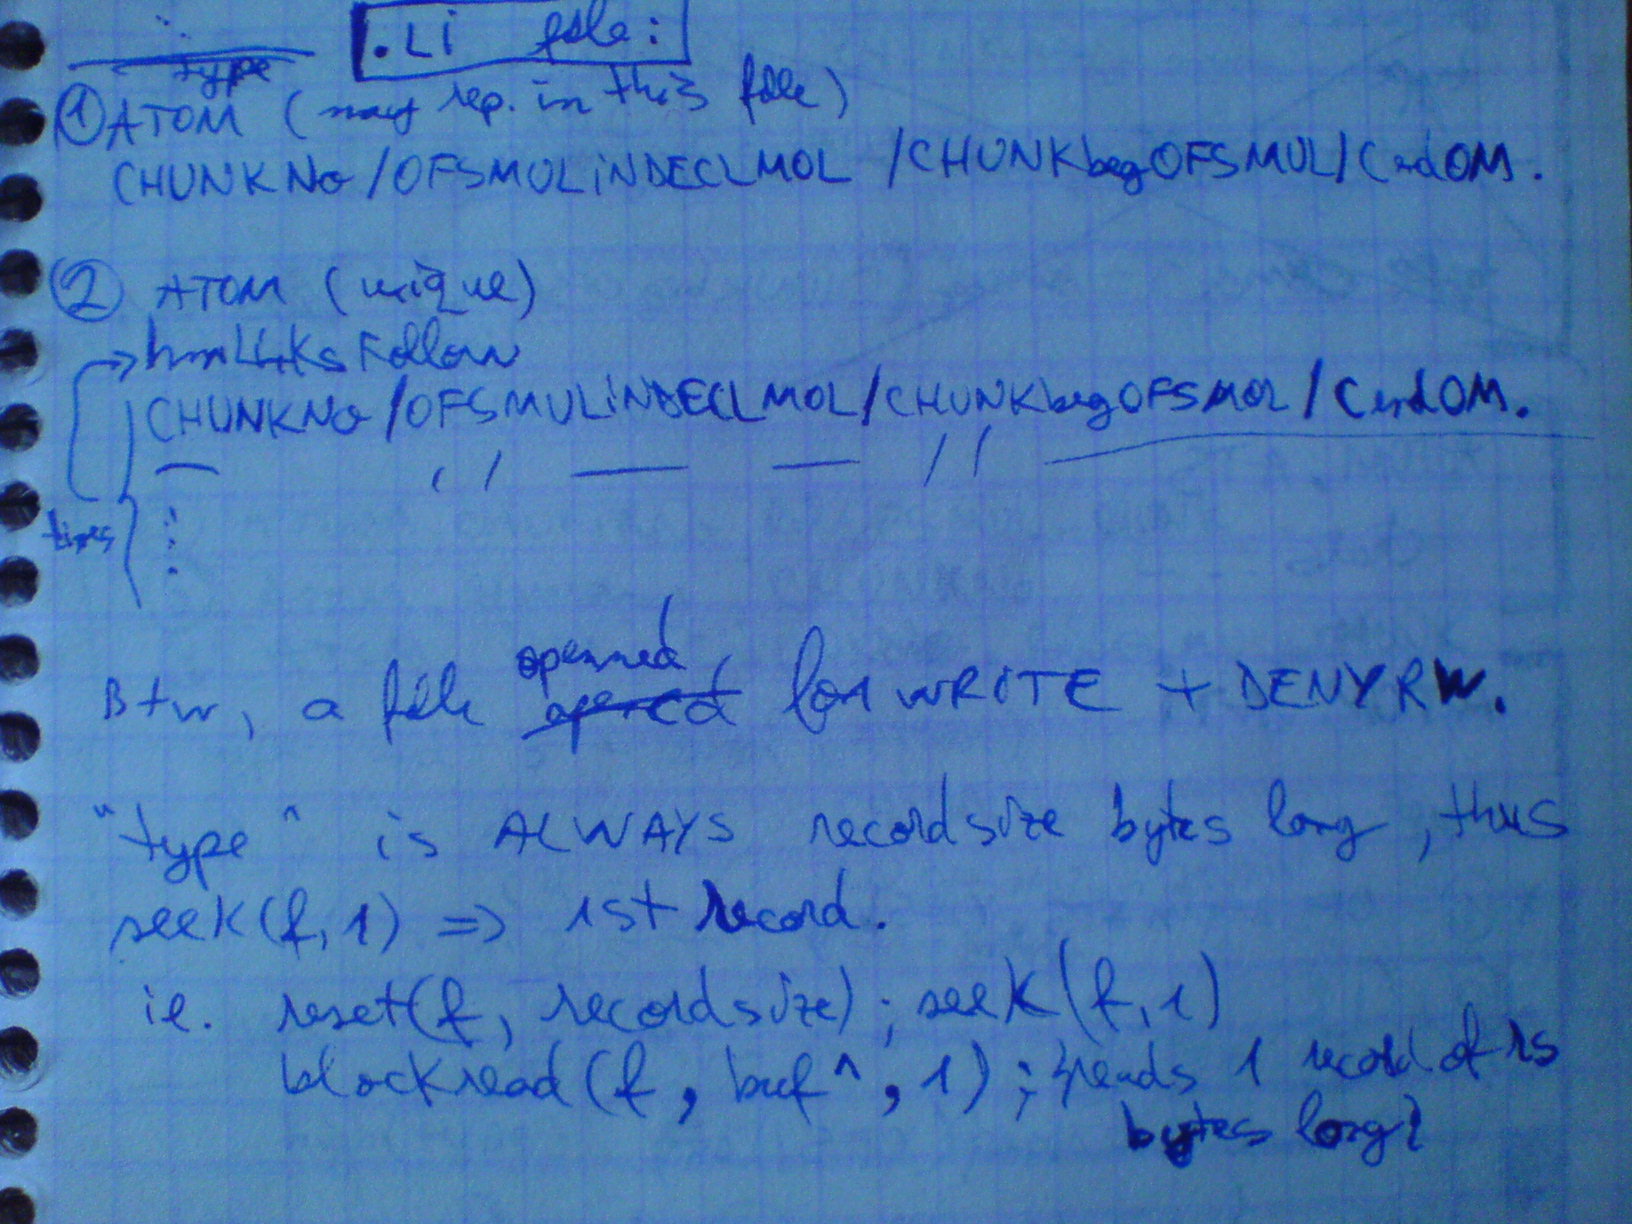 .Li file:
type
① ATOM (may rep. in this file)
CHUNKNo /OFSMULiNDECLMOL /CHUNKbegOFSMUL/CendOM.
② ATOM (unique)
CHUNKNo /OFSMULiNDECLMOL/CHUNKbegOFSMOL / CendOM.
— // — — // —
times
Btw, a file openned opened for WRITE + DENYRW.
"type" is ALWAYS recordsize bytes long, thus
seek(f,1) => 1st record.
ie. reset(f, recordsize); seek(f,1)
blockread(f, buf^, 1); {reads 1 record of rs
bytes long}